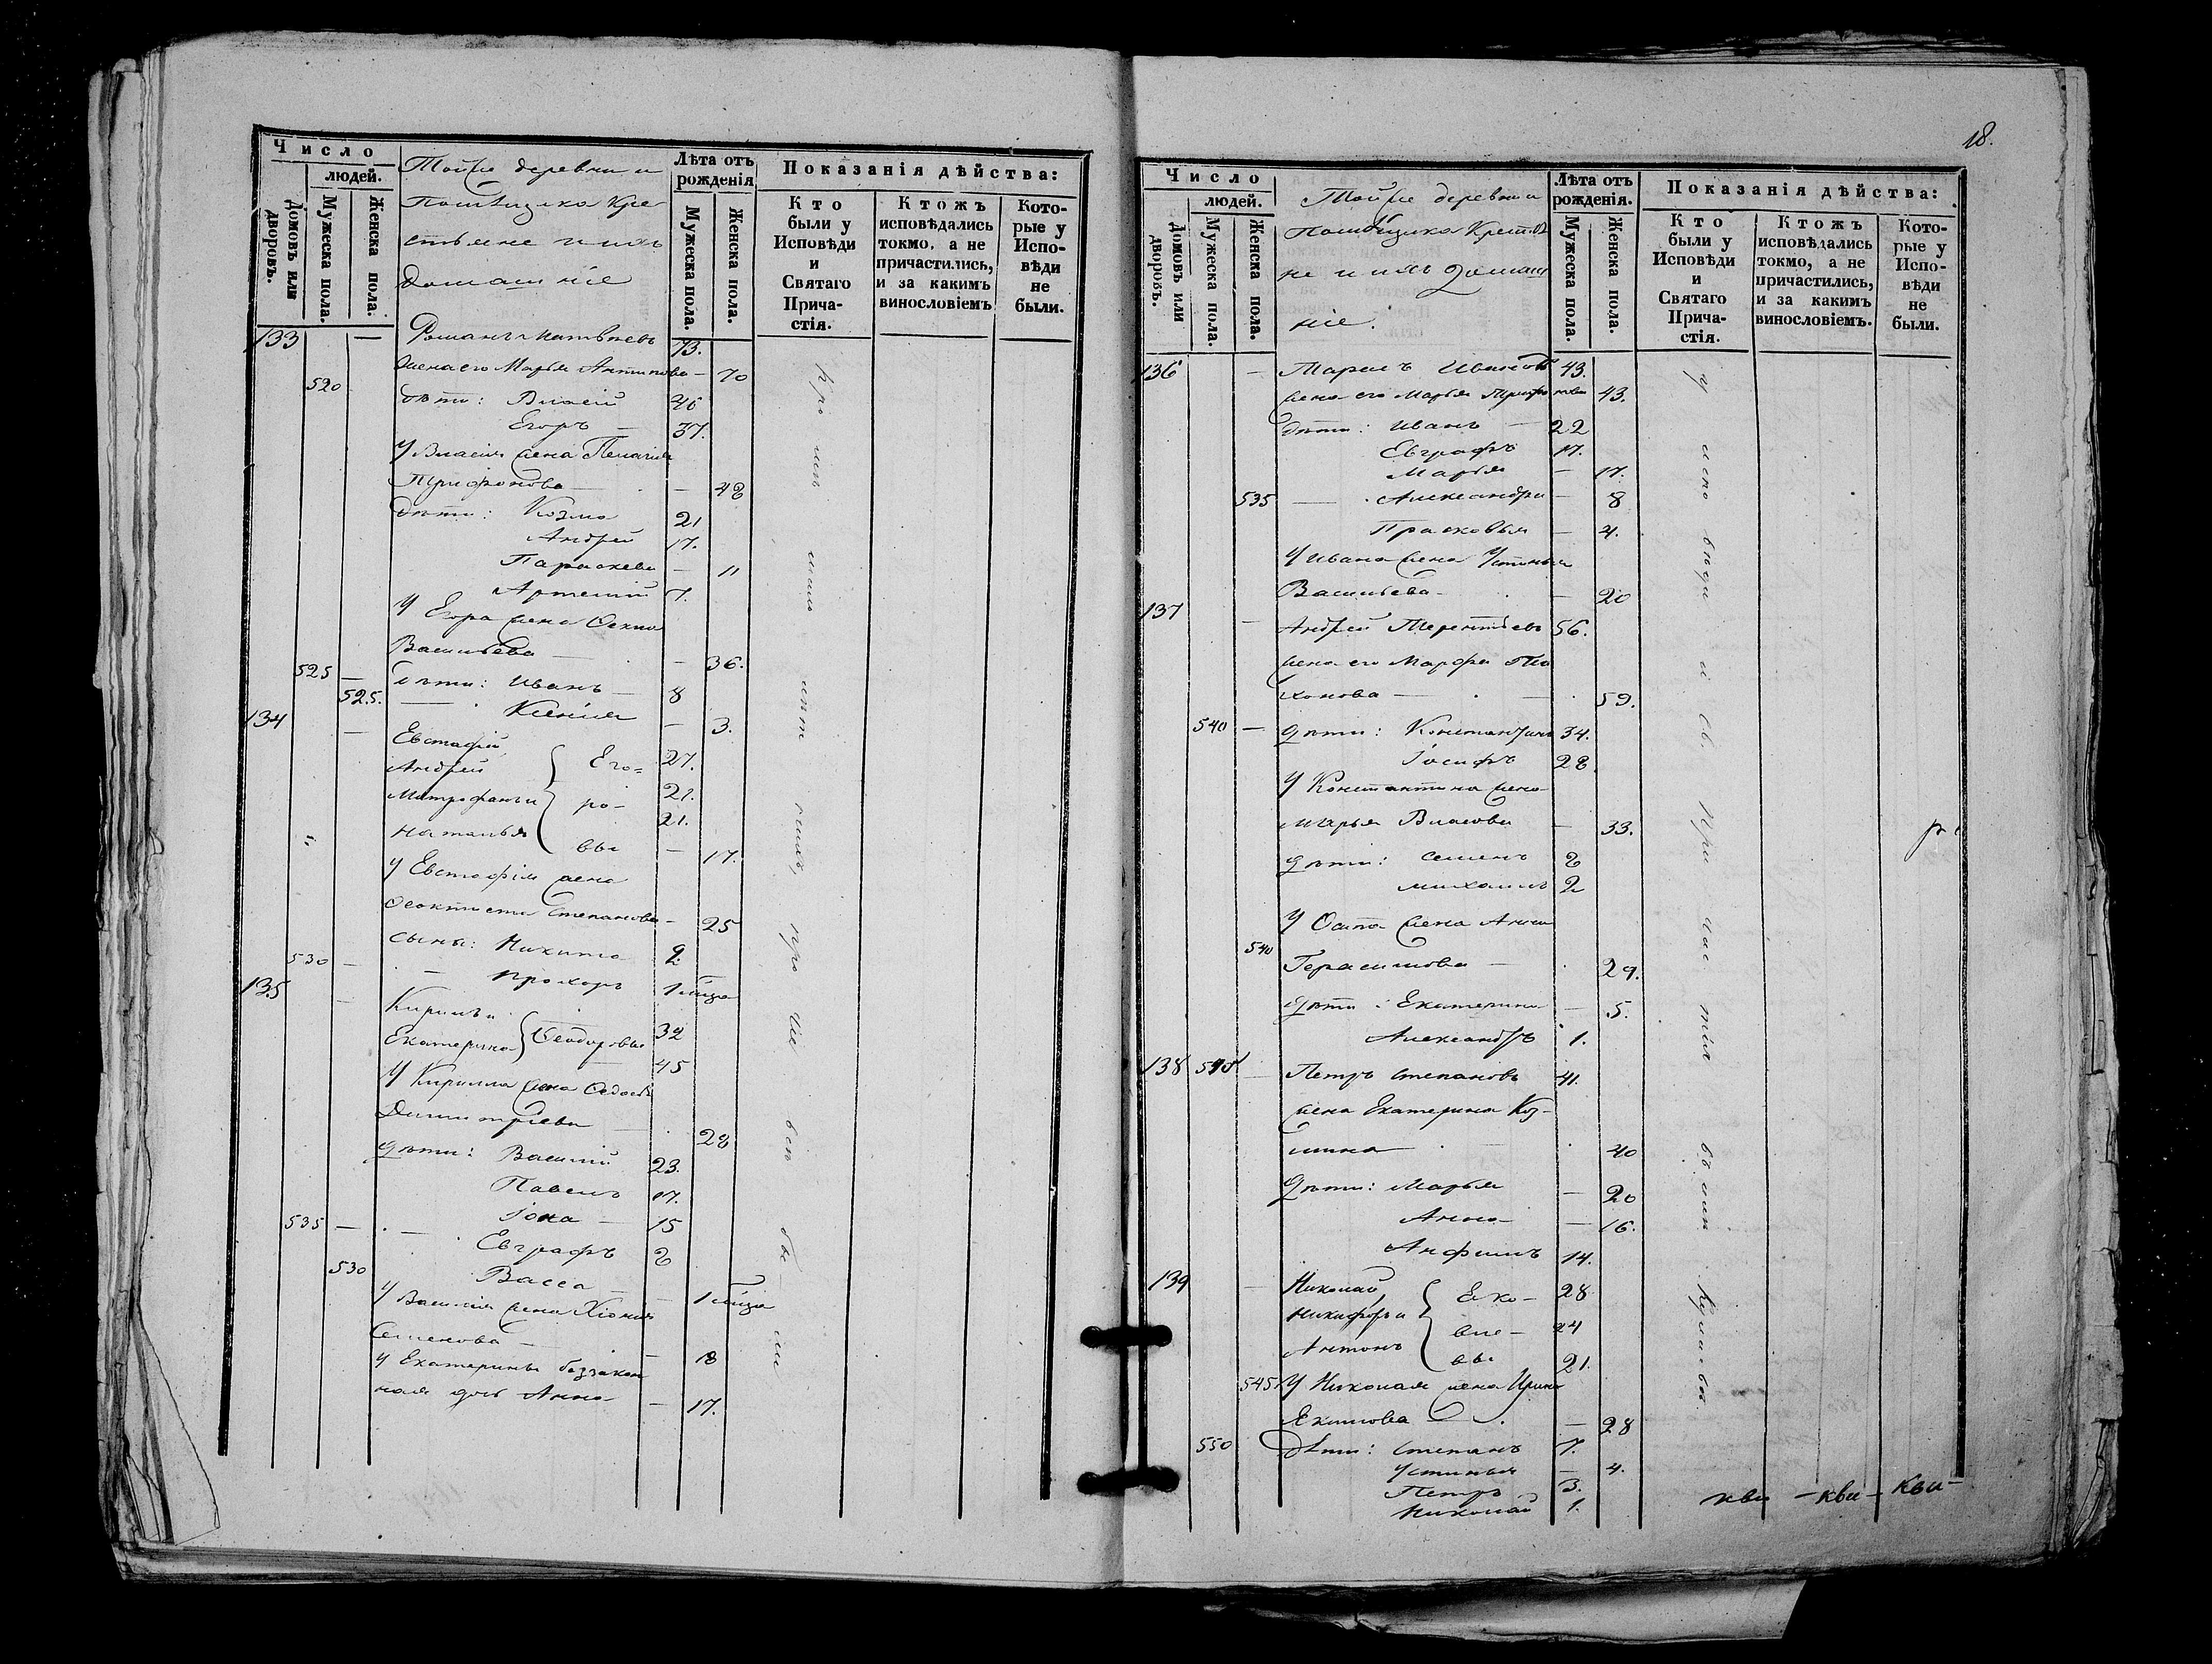 Число
людей.
Домовъ или дворовъ.
Мужеска пола.
Женска пола.
Тойже деревни и
Помѣщика Кре-
стьяне и ихъ
домашніе
Лѣта отъ рожденія
Мужеска пола.
Женска пола.
Показанія дѣйства:
Кто были у Исповѣди и Святаго Прича-стія.
Ктожъ исповѣдались токмо, а не причастились, и за какимъ винословіемъ
Кото-рые у Испо-вѣди не были.
133 — Романъ Матвѣевъ 73.
жена его Марья Антипова — 70
520 дѣти: Власій 46
Егоръ — 37.
У Власія жена Пелагія
Трифонова — 48
дѣти: Козма 21
Андрей 17.
Параскева — 11
Артемій 7.
У Егора жена
Васильева — 36.
525 — дѣти: Иванъ — 8
525. — Ксенія — 3.
134 — Евстафій 27.
Андрей Его= 21.
Митрофанъ и ро- 21.
Наталья вы — 17.
У Евстафія жена
Феоктиста Степанова — 25
сыны: Никита 2
530 — Прохоръ 1 мѣсяца
135 — Кирилъ и
Екатерина Феодоровы 32
45
У Кирилла жена Федосья
Димитріева — 28
дѣти: Василій 23.
Павелъ 17.
Іона — 15
535 — Евграфъ 2
530 Васса — 1 мѣсяца
У Василія жена Хіонія
Семенова — 18
У Екатерины беззакон
ная дочь Анна — 17.
были
18.
Число
людей.
Домовъ или дворовъ.
Мужеска пола.
Женска пола.
Тойже деревни и
Помѣщика Крестья
не и ихъ домаш
ніе.
Лѣта отъ рожденія.
Мужеска пола.
Женска пола.
Показанія дѣйства:
Кто были у Исповѣди и Святаго Прича-стія.
Ктожъ исповѣдались токмо, а не причастились, и за какимъ винословіемъ.
Кото-рые у Испо-вѣди не были.
136 — Ивановъ 43.
жена его Марья Трифонова 43.
дѣти: Иванъ — 22
Евграфъ 17.
Марья — 17.
535 — Александра — 8
Прасковья — 4.
У Ивана жена Устинья
Васильева — 20
137 — Андрей Терентьевъ 56.
жена его Марфа Ти
хонова — 59.
540 — дѣти: Константинъ 34.
Іосифъ 28
У Константина жена
Марья Власова — 33.
дѣти: Семенъ 2
Михаилъ 2
У Осипа жена Анна
540 Герасимова — 29.
дѣти: Екатерина — 5.
Александръ 1.
138 545 — Петръ Степановъ 41.
жена Екатерина Коз-
мина — 40
дѣти: Марья — 20
Анна — 16.
Анфимъ 14.
139 — Николай, 28
Никифоръ и 24
Антонъ вы 21.
545 У Николая жена Ирина
Екимова — 28
550 дѣти: Степанъ 7.
Устинья — 4.
Петръ 3.
Николай 1.
у исповѣди и св. причастія
кви — кви — кви —